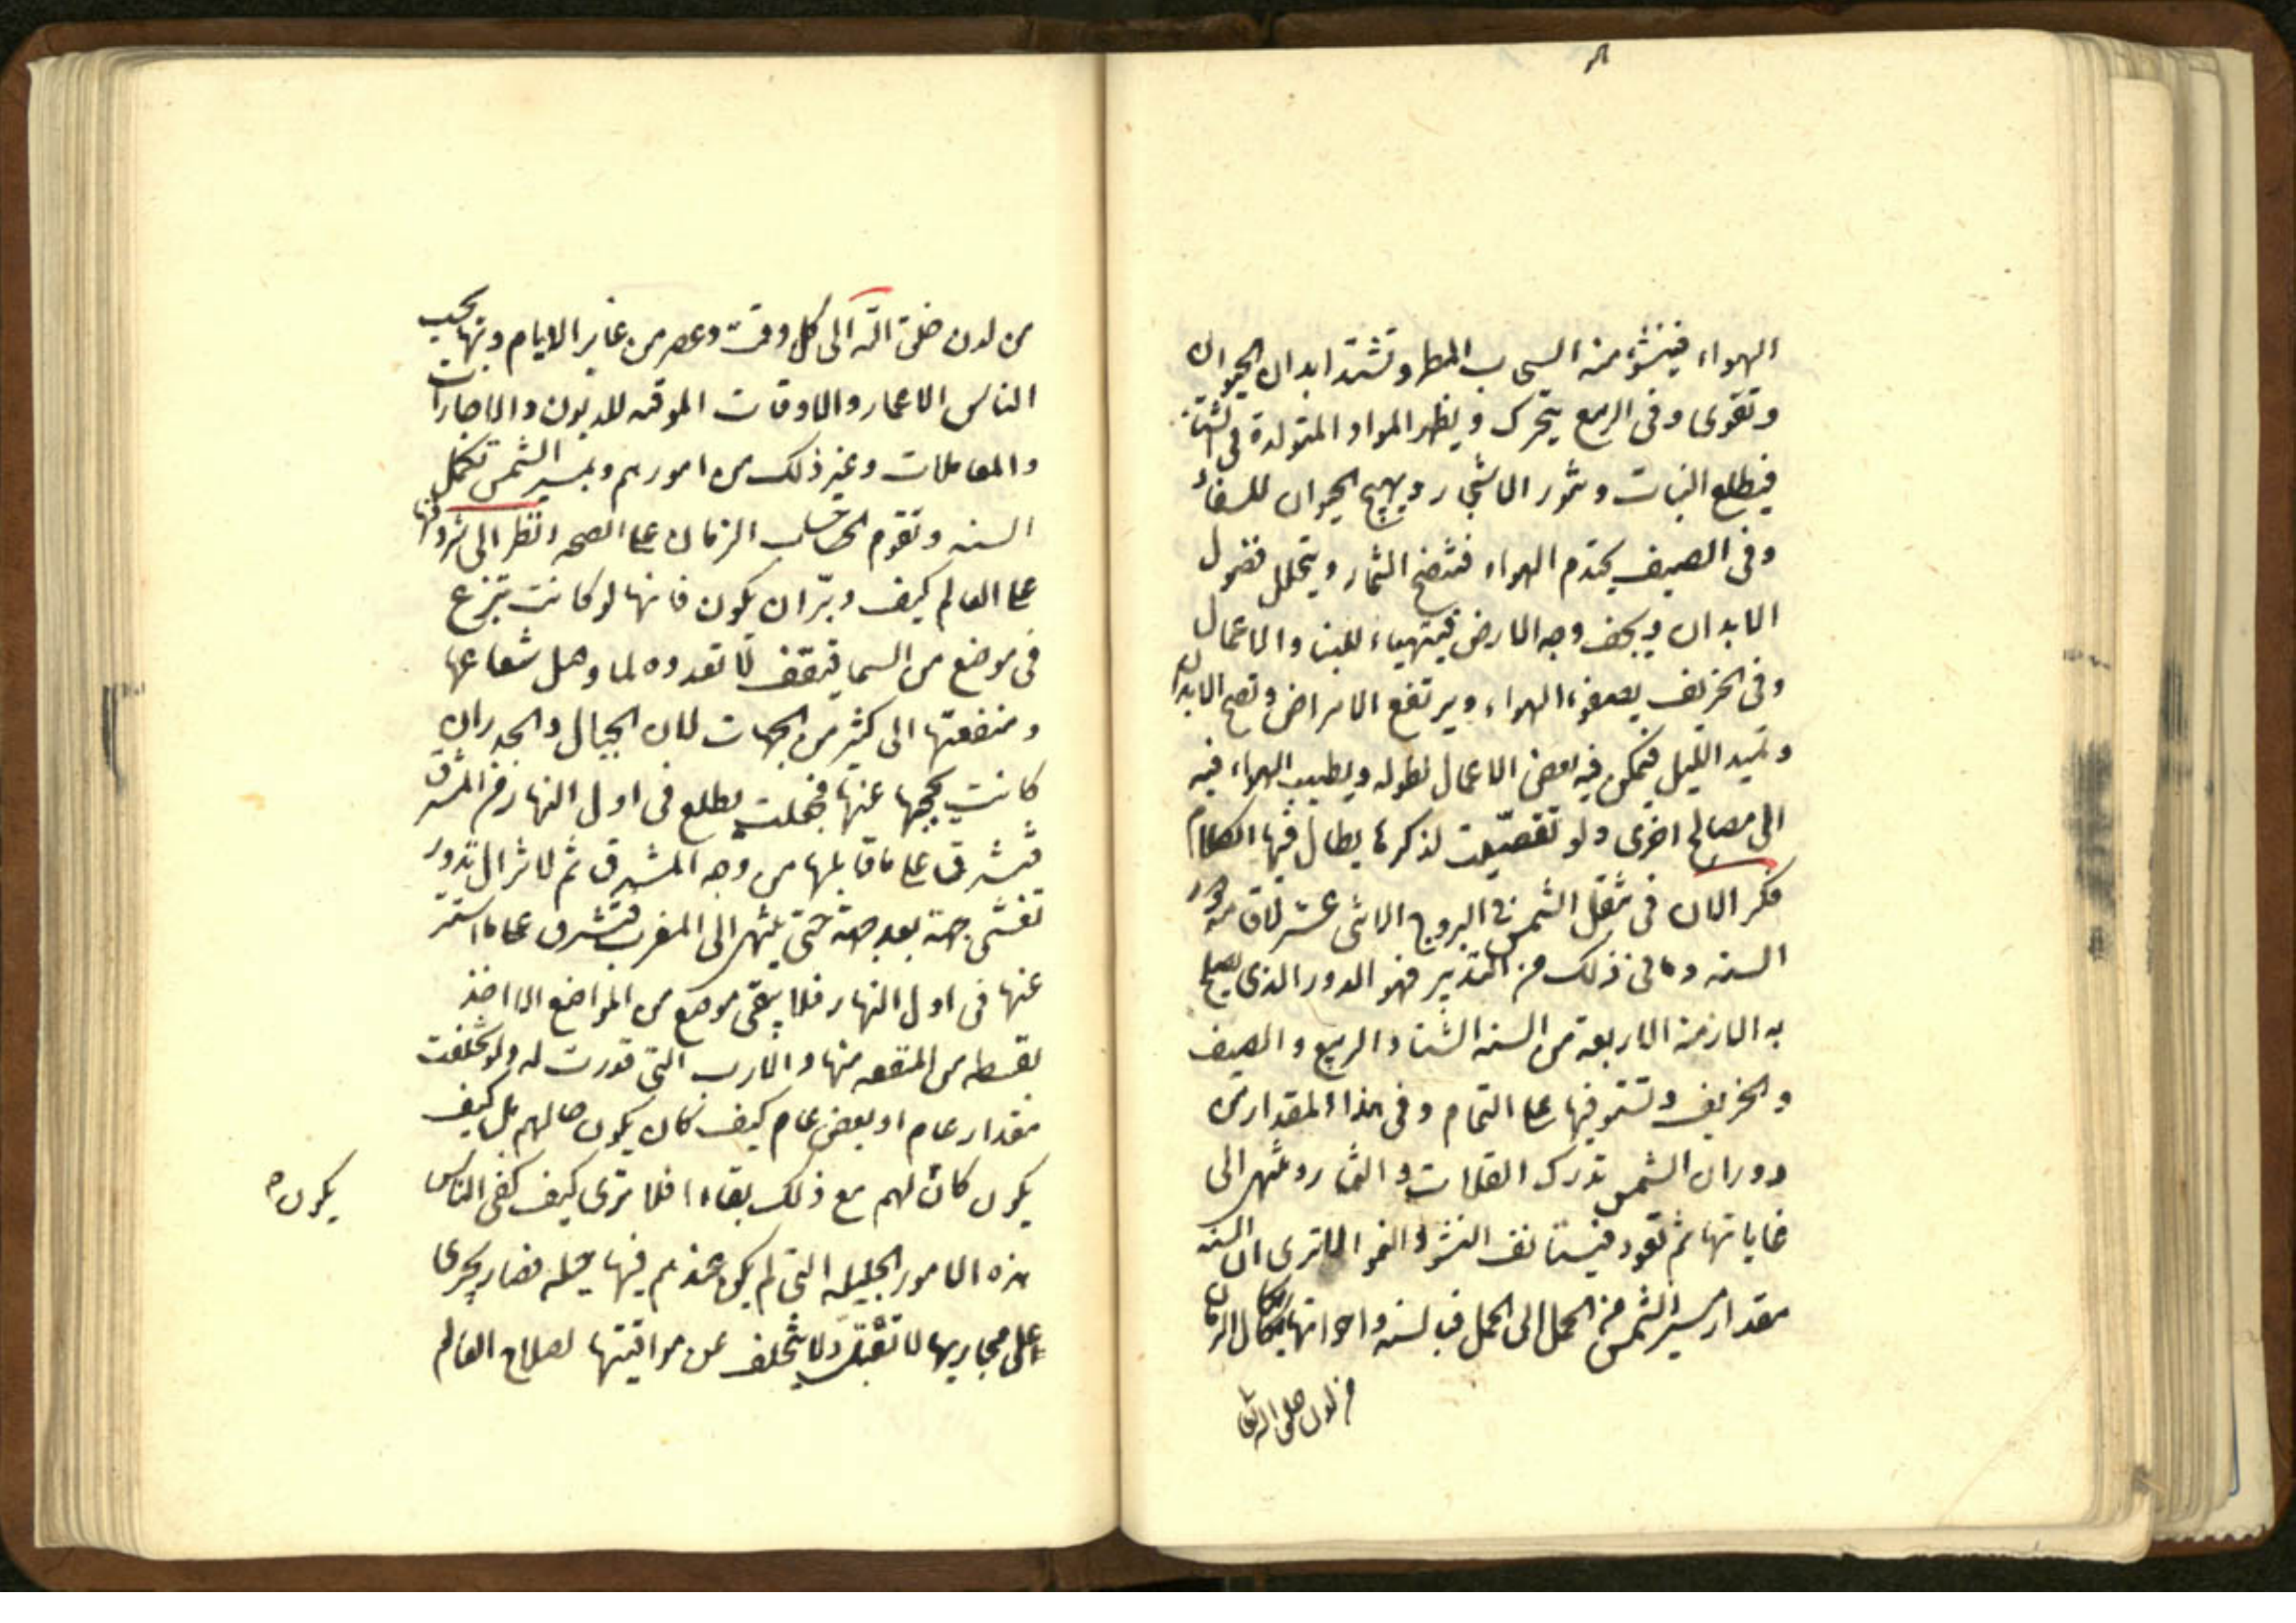 الهواء فينشؤ منه السحاب المطر وتشتد ابدان الحيوان
وتقوى وفى الربيع يتحرك ويظهر المواد المتولدة فى الشتاء
فيطلع النبات وتنور الاشجار ويهيج الحيوان للسفاد
وفى الصيف يحتدم الهواء فتنضج الثمار ويتحلل فضول
الابدان ويجف وجه الارض فيتهياء للبناء والاعمال
وفى الخريف يصفوء الهواء ويرتفع الامراض وتصح الابدان
ويمتد الليل فيمكن فيه بعض الاعمال لطوله ويطيب الهواء فيه
الى مصالح اخرى ولو تقصيت لذكرها يطال فيها الكلام
فكر الان فى تنقل الشمس فى البروج الاثنى عشر لاقامة دور
السنه وما فى ذلك من التدبير فهو الدور الذى يصح
به الازمنة الاربعة من السنه الشتا والربيع والصيف
والخريف وتستوفيها على التمام وفى هذا المقدار من
دوران الشمس تدرك الغلات والثمار وتنتهى الى
غاياتها ثم تعود فيستانف النشؤ والنمو الا ترى ان السنه
مقدار مسير الشمس من الحمل الى الحمل فبالسنه واخواتها يكال الزمان
من لدن خلق الله تعالى
من لدن خلق الله الى كل وقت وعصر من غابر الايام وبها يحسب
الناس الاعمار والاوقات الموقته للديون والاجارات
والمعاملات وغير ذلك من امورهم وبمسير الشمس تكمل
السنه وتقوم حساب الزمان على الصحه انظر الى شروقها
على العالم كيف دبّر ان يكون فانها لو كانت تبزع
فى موضع من السما فتقف لا تعدوه لما وصل شعاعها
ومنفعتها الى كثير من الجهات لان الجبال والجدران
كانت يحجبها عنها فجعلت يطلع فى اول النهار من المشرق
فتشرق على ما قابلها من وجه المشرق ثم لا تزال تدور
تغشى جهة بعد جهة حتى تنتهى الى المغرب فتشرق على ما استتر
عنها فى اول النهار فلا يبقى موضع من المواضع الا اخذ
بقسطه من المنفعه منها والارب التى قدرت له ولو تخلفت
مقدار عام او بعض عام كيف كان يكون حالهم بل كيف
يكون كان لهم مع ذلك بقاء افلا ترى كيف كفى الناس
يكون
هذه الامور الجليله التى لم يكن عندهم فيها حيله فصار يجرى
على مجاريها لا تعتل ولا يتخلف عن مواقيتها لصلاح العالم